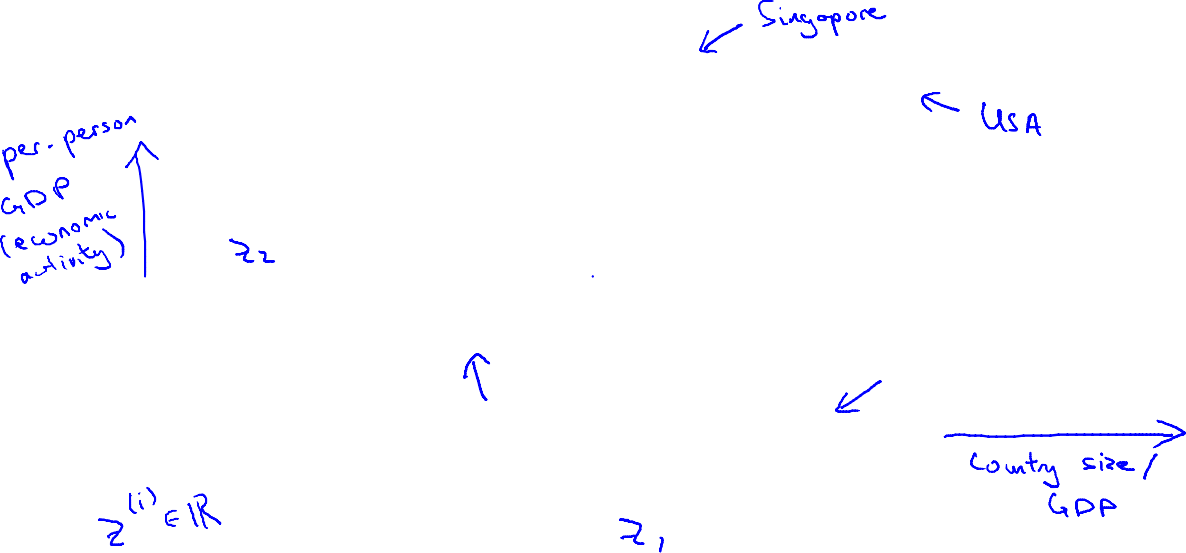 Singapore
USA
per-person
GDP
(economic
activity)
z₂
Country size/
GDP
z⁽ⁱ⁾ ∈ ℝ
z₁